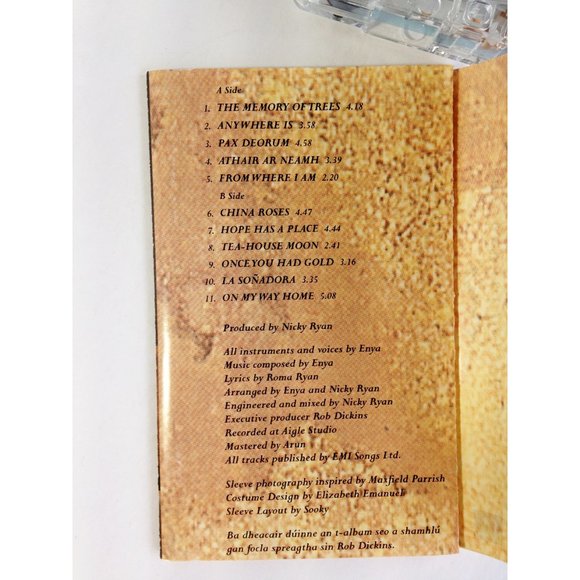 A Side
1. THE MEMORY OF TREES 4.18
2. ANYWHERE IS 3.58
3. PAX DEORUM 4.58
4. ATHAIR AR NEAMH 3.39
5. FROM WHERE I AM 2.20
B Side
6. CHINA ROSES 4.47
7. HOPE HAS A PLACE 4.44
8. TEA-HOUSE MOON 2.41
9. ONCE YOU HAD GOLD 3.16
10. LA SOÑADORA 3.35
11. ON MY WAY HOME 5.08
Produced by Nicky Ryan
All instruments and voices by Enya
Music composed by Enya
Lyrics by Roma Ryan
Arranged by Enya and Nicky Ryan
Engineered and mixed by Nicky Ryan
Executive producer Rob Dickins
Recorded at Aigle Studio
Mastered by Arun
All tracks published by EMI Songs Ltd.
Sleeve photography inspired by Maxfield Parrish
Costume Design by Elizabeth Emanuel
Sleeve Layout by Sooky
Ba dheacair dúinne an t-album seo a shamhlú
gan focla spreagtha sin Rob Dickins.